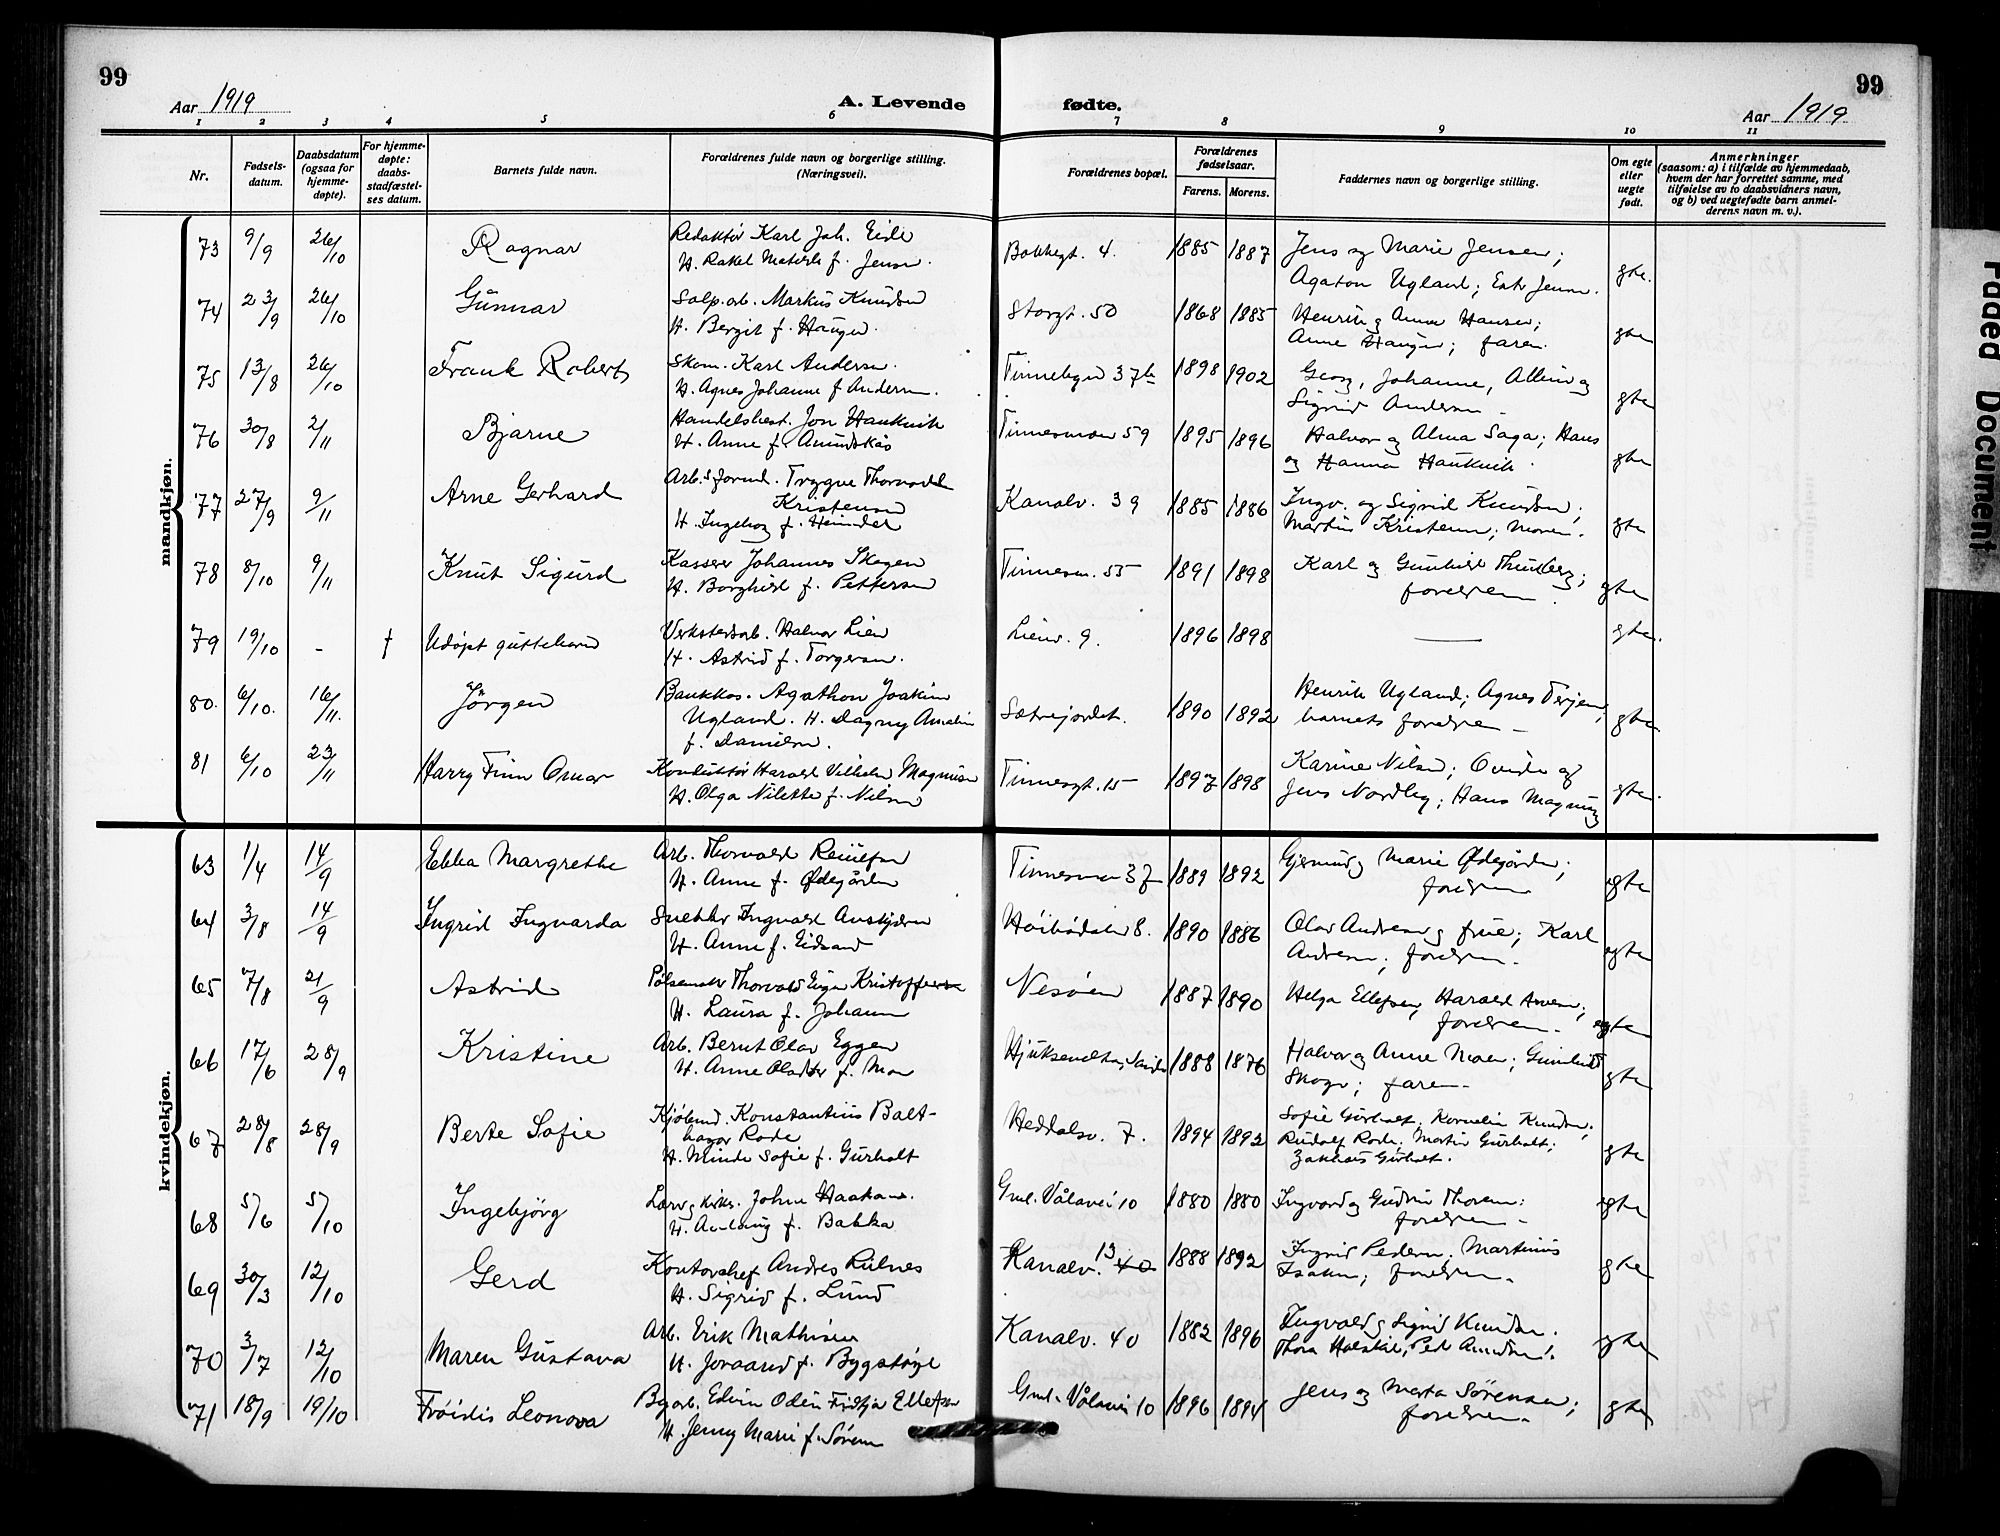 99
99
Aar 1919
A. Levende
fødte.
Aar 1919
1 2 3 4 5 6 7 8 9 10 11
Nr.
Fødsels-
datum.
Daabsdatum
(ogsaa for
hjemme-
døpte).
For hjemme-
døpte:
daabs-
stadfæstel-
ses datum.
Barnets fulde navn.
Forældrenes fulde navn og borgerlige stilling.
(Næringsvei).
Forældrenes bopæl.
Forældrenes
fødselsaar.
Farens. Morens.
Faddernes navn og borgerlige stilling.
Om egte
eller
uegte
født.
Anmerkninger
(saasom: a) i tilfælde av hjemmedaab,
hvem der har forrettet samme, med
tilføielse av to daabsvidners navn,
og b) ved uegtefødte barn anmel-
derens navn m. v.).
mandkjøn.
73 9/9 26/10 Ragnar Redaktør Karl Joh. Eide Bakkegt. 4. 1885 1887 Jens og Marie Jensen; gte.
H. Rakel Matilde f. Jensen. Agaton Ugland; Jensen.
74 23/9 26/10 Gunnar Salp.arb. Markus Knudsen Storgt. 50 1868 1885 Henrik og Anna Hansen; gte
H. Bergit f. Haugen. Anne Haugen; faren.
75 13/8 26/10 Frank Robert Skom. Karl Andersen. Tinnebyen 37b 1898 1902 Georg, Johanne, og gte
H. Agnes Johanne f Andersen. Sigrid Andersen
76 30/8 2/11 Bjarne Handelsbest. Jon Haukvik Tinnesmoen 59 1895 1896 Halvor og Alma Saga; Hans gte
H. Anne f. Amundskås og Hanna Haukvik.
77 27/9 9/11 Arne Gerhard Arb.sformd. Trygve Thorvald Kanalv. 39 1885 1886 Ingv. og Sigrid Knudsen; gte
Kristensen
H. Ingeborg f. Heimdal Martin Kristensen; moren.
78 8/10 9/11 Knut Sigurd Kasserer Johannes Skogen Tinnesm. 55 1891 1898 Karl og Gunhild Thunberg; gte
H. Borghild f. Pettersen foreldrene.
79 19/10 - † Udøpt guttebarn Verkstedsarb. Halvor Lien Lienv. 9. 1896 1898 — gte.
H. Astrid f. Torgersen.
80. 6/10. 16/11. Jörgen Bankkas. Agathon Joakim Sætrejordet. 1890 1892 Henrik Ugland; Agnes Terjesen; gte
Ugland. H. Dagny Amalie barnets foreldre
f. Danielsen.
81 6/10 23/11 Harry Finn Omar Konduktør Harald Vilhelm Magnusen Tinnesgt. 15 1897 1898 Karine Nilsen; og gte.
H. Olga Nilette f. Nilsen Jens Nordby; Hans Magnusen
kvindekjøn.
63 1/4 14/9 Ebba Margrethe Arb. Thorvald Tinnesmoen 37 1889 1892 Gjermund og Marie Ødegården; egte
H. Anne f. Ødegården foreldrene
64 3/8 14/9 Ingrid Ingvarda Snekker Ingvald Auskjæren Høibødalen 8. 1890 1886 Olav Andresen og frue; Karl egte
H. Anne f. Eidsand Andresen; foreldrene.
65 7/8 21/9 Astrid Pølsemaker Thorvald Kristoffersen Nesøen 1887 1890 Helga Ellefsen, Harald; egte
H. Laura f. Johansen foreldrene.
66 17/6 28/9 Kristine Arb. Bernt Olav Eggen Hjuksendalen, 1888 1876 Halvor og Anne Moen; Gunhild gte
H. Anne f. Moen Skogen; faren
67 28/8 28/9 Berte Sofie Kjøbmd. Konstantinus Balt- Heddalsv. 7. 1894 1892 Sofie Gurholt. Kornelia Knudsen; gte
hazar Rode Rudolf Rode; Martin Gurholt;
H. Minda Sofie f. Gurholt Zakkæus Gurholt.
68 5/6 5/10 Ingebjørg John Haakons. Gml. Vålavei 10 1880 1880 Ingvard og Gudrun Thorsen; egte
H. f. Bakka foreldrene
69 30/3 12/10 Gerd Kontorchef Andres Lilnes Kanalv. 13 40 1888 1892 Ingrid Pedersen; Martinius gte
H. Sigrid f. Lund Isaksen; foreldrene.
70 3/7 12/10 Maren Gustava Arb. Erik Mathisen Kanalv. 40 1882 1896 Ingvald og Sigrid Knudsen. egte
H. Joraand f. Bygstøyl Thora Holskil; Amundsen.
71 18/9 19/10 Frøidis Leonora Bgarb. Edvin Odin Fridtjov Ellefsen Gml. Vålavei 10 1896 1894 Jens og Marta Sørensen; gte
H. Jenny Marie f. Sørensen foreldrene
Faded Document